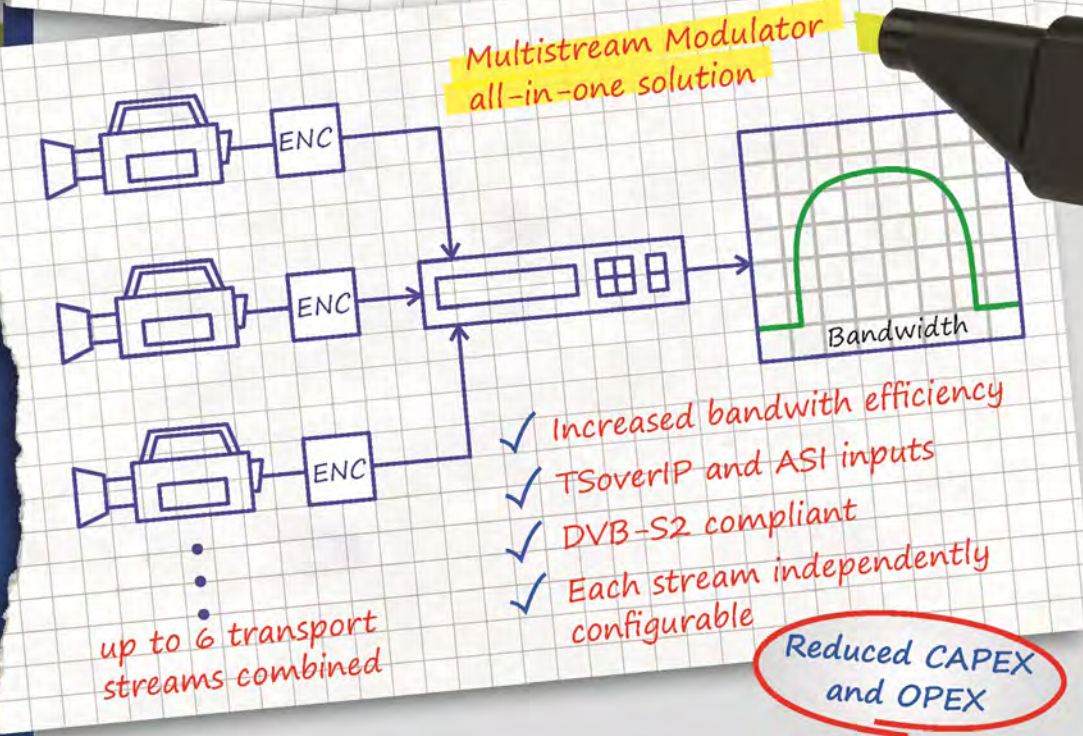 Multistream Modulator
all-in-one solution
ENC
ENC
ENC
Bandwidth
Increased bandwith efficiency
TSoverIP and ASI inputs
DVB-S2 compliant
Each stream independently
configurable
up to 6 transport
streams combined
Reduced CAPEX
and OPEX